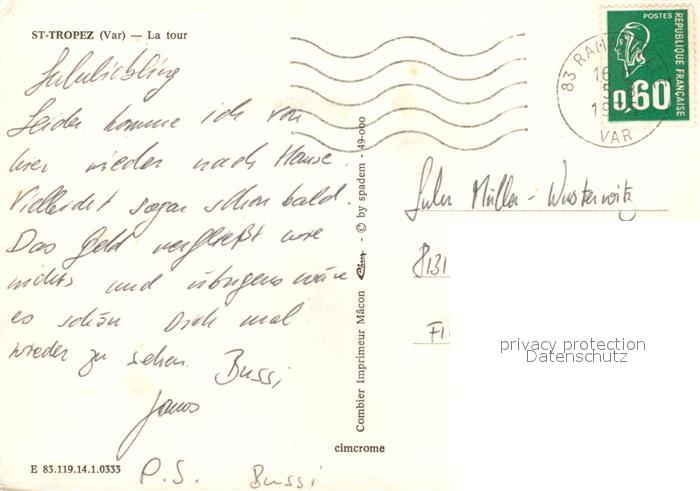 ST-TROPEZ (Var) — La tour
Leider komme ich von
hier wieder nach Hause.
Vielleicht sogar schon bald.
Das Geld verfließt wie
nichts und übrigens wäre
es schön Dich mal
wieder zu sehen. Bussi
P.S. Bussi
E 83.119.14.1.0333
Combier Imprimeur Mâcon Cim - © by spadem - 49-000
cimcrome
POSTES
REPUBLIQUE FRANÇAISE
0,60
83
16
5
19
VAR
Müller - Wusterwitz
8131
privacy protection
Datenschutz